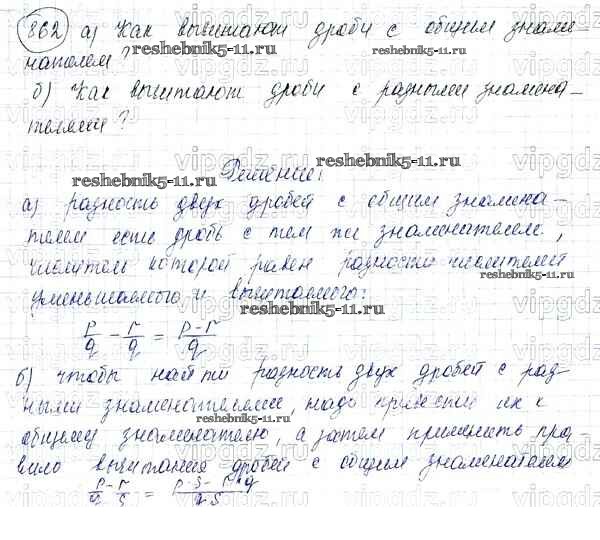 862 а) Как вычитают дроби с общим знаме-
нателем?
б) Как вычитают дроби с разными знамена-
телями?
Решение:
а) разность двух дробей с общим знамена-
телем есть дробь с тем же знаменателем,
числитель которой равен разности числителей
уменьшаемого и вычитаемого:
p/q - r/q = p-r/q
б) чтобы найти разность двух дробей с раз-
ными знаменателями, надо привести их к
общему знаменателю, а затем применить пра-
вило вычитания дробей с общим знаменателем
p/q - r/s = p·s - r·q/q·s
reshebnik5-11.ru
reshebnik5-11.ru
reshebnik5-11.ru
reshebnik5-11.ru
reshebnik5-11.ru
reshebnik5-11.ru
vipgdz.ru